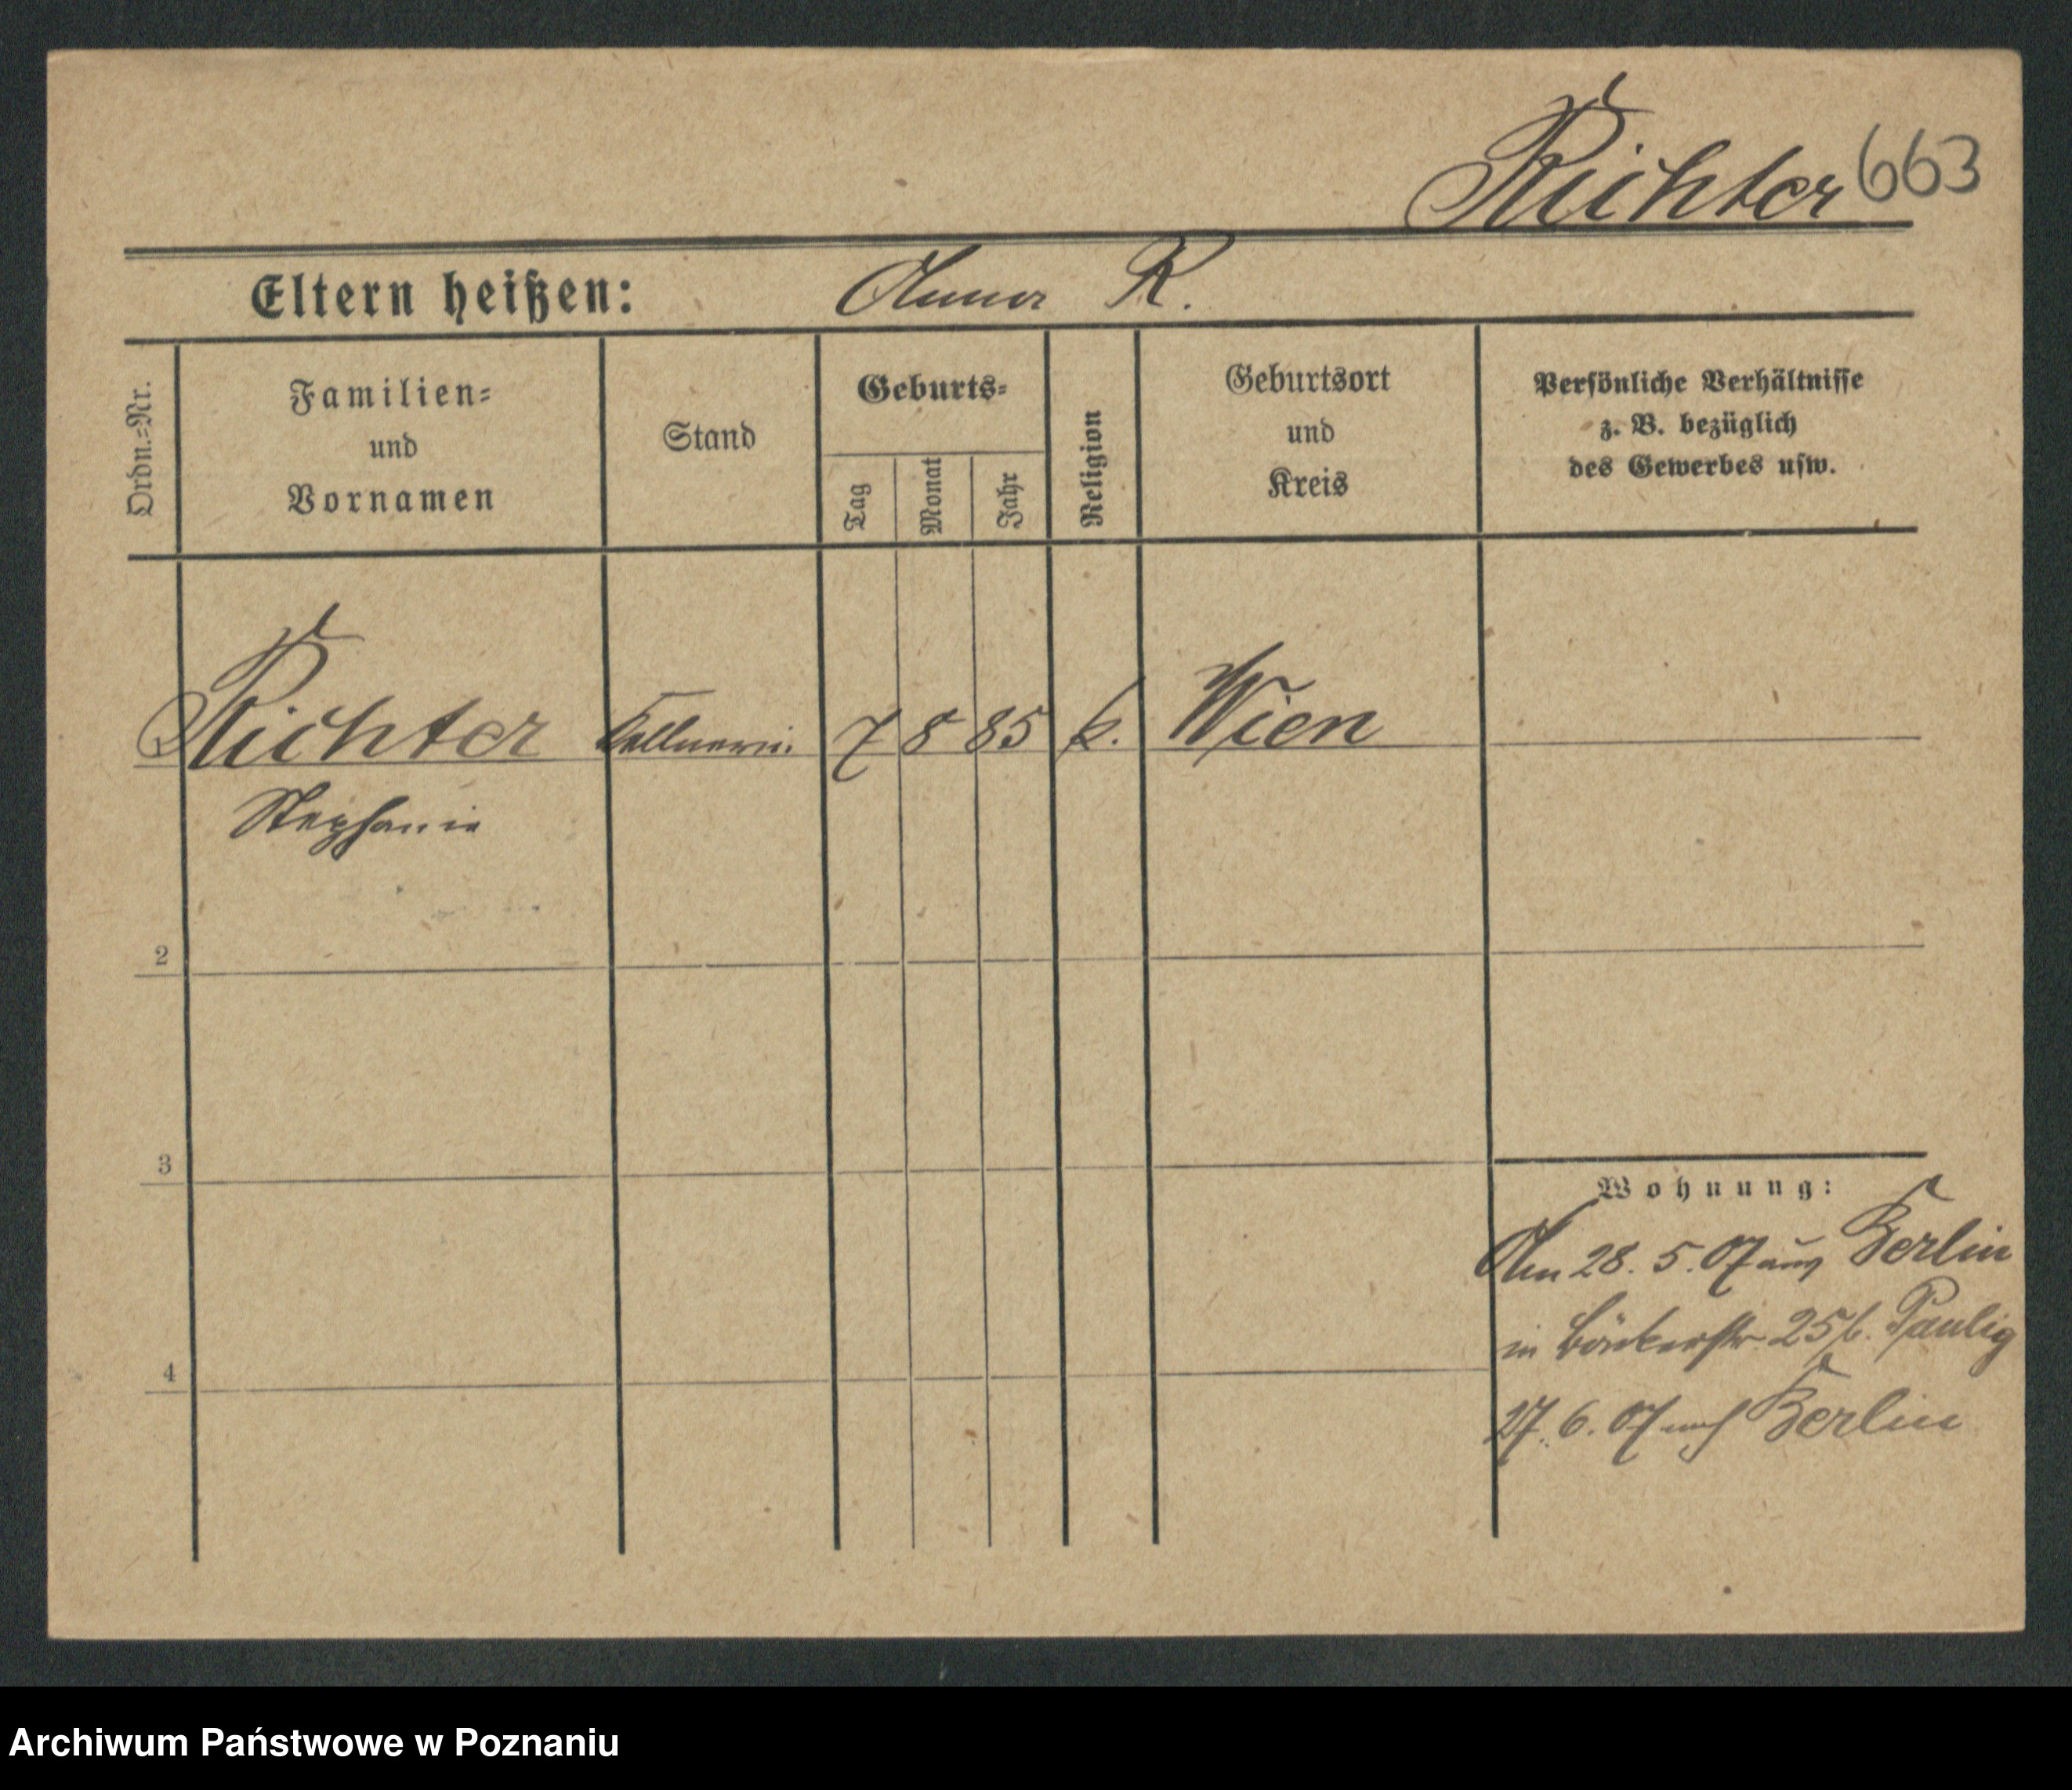 Richter 663
Eltern heißen: Anna R.
Ordn.=Nr.
Familien=
und
Vornamen
Stand
Geburts=
Tag
Monat
Jahr
Religion
Geburtsort
und
Kreis
Persönliche Verhältnisse
z. B. bezüglich
des Gewerbes usw.
1 Richter Kellnerin. 7 8 85 k. Wien
Stephanie
2
3
4
Wohnung:
Am 28. 5. 07 aus Berlin
in Bäckerstr. 25 b. Paulig
27. 6. 07 nach Berlin
Archiwum Państwowe w Poznaniu